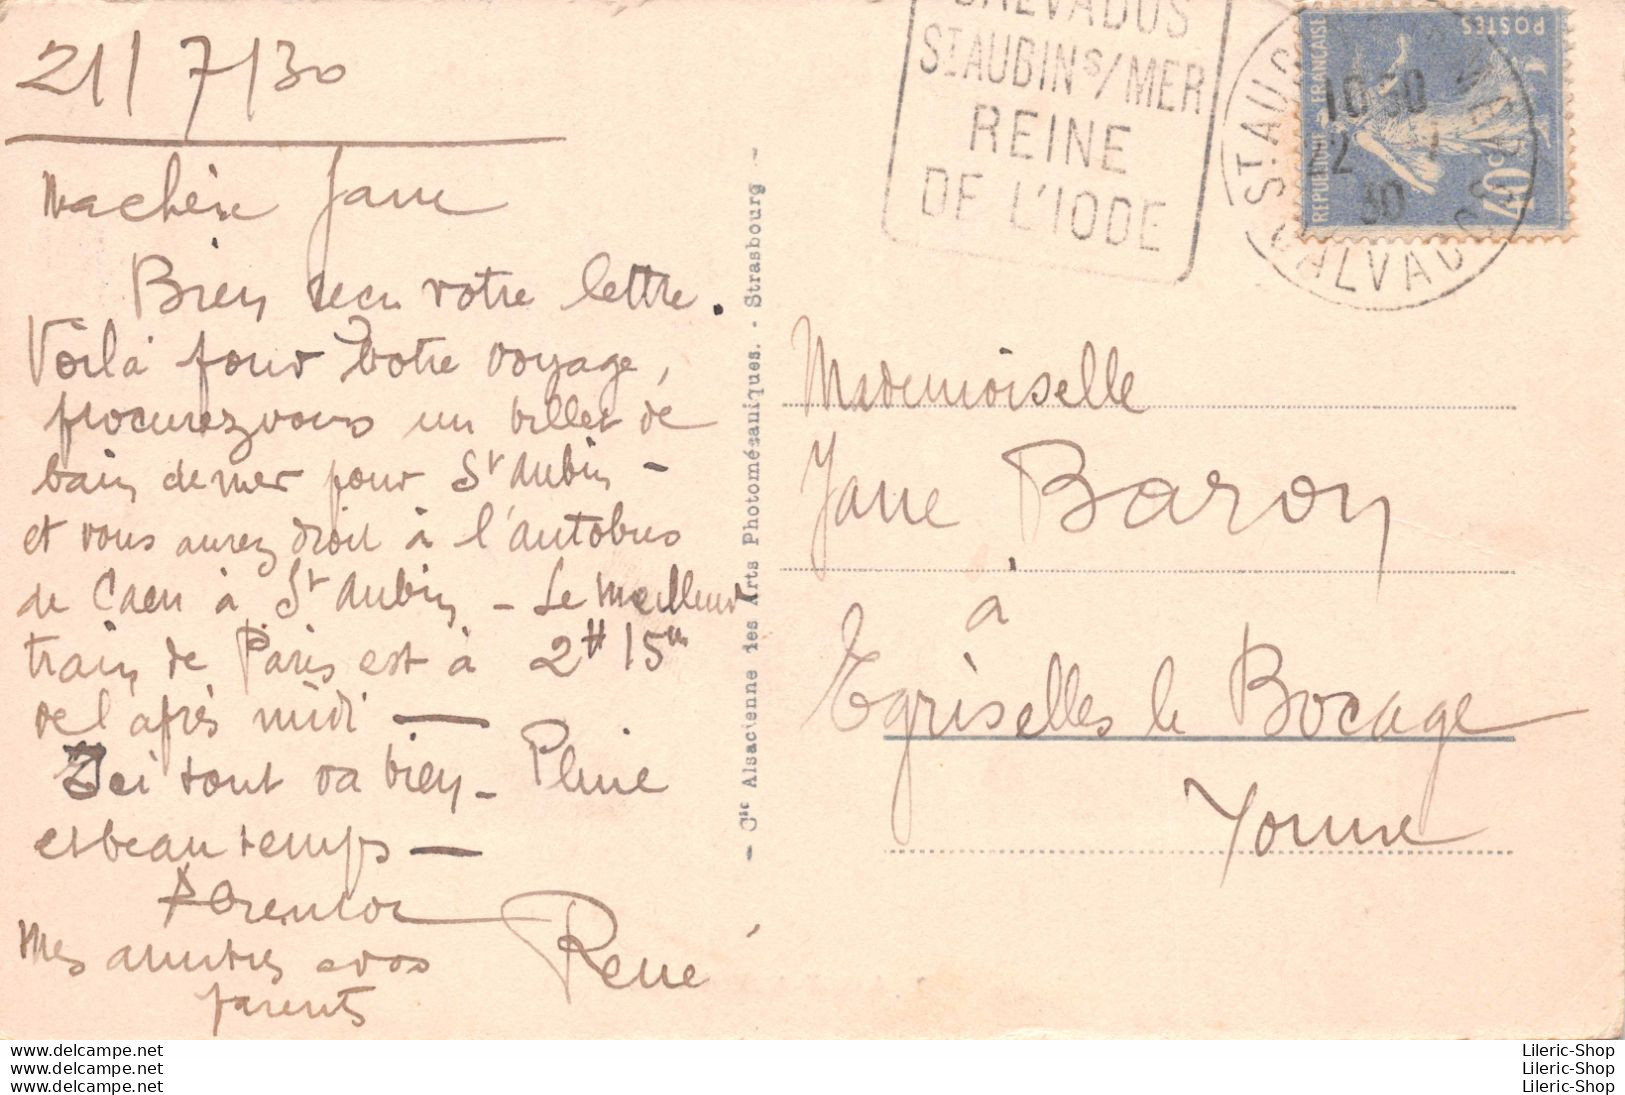 21/7/30
Ma chère Jane
Bien reçu votre lettre.
Voilà pour votre voyage,
procurez vous un billet de
bain de mer pour St Aubin -
et vous aurez droit à l'autobus
de Caen à St Aubin - Le meilleur
train de Paris est à 2H 15m
de l'après midi —
Ici tout va bien - Pluie
et beau temps —
René
Mes amitiés à vos
parents
- Cie Alsacienne des Arts Photomécaniques. - Strasbourg -
CALVADOS
ST AUBIN S/MER
REINE
DE L'IODE
ST AUBIN S MER
10 30
22 7
30
CALVADOS
REPUBLIQUE FRANÇAISE
POSTES
40c
Mademoiselle
Jane Baron
à
Egriselles le Bocage
Yonne
delcampe.net
delcampe.net
delcampe.net
Lileric-Shop
Lileric-Shop
Lileric-Shop